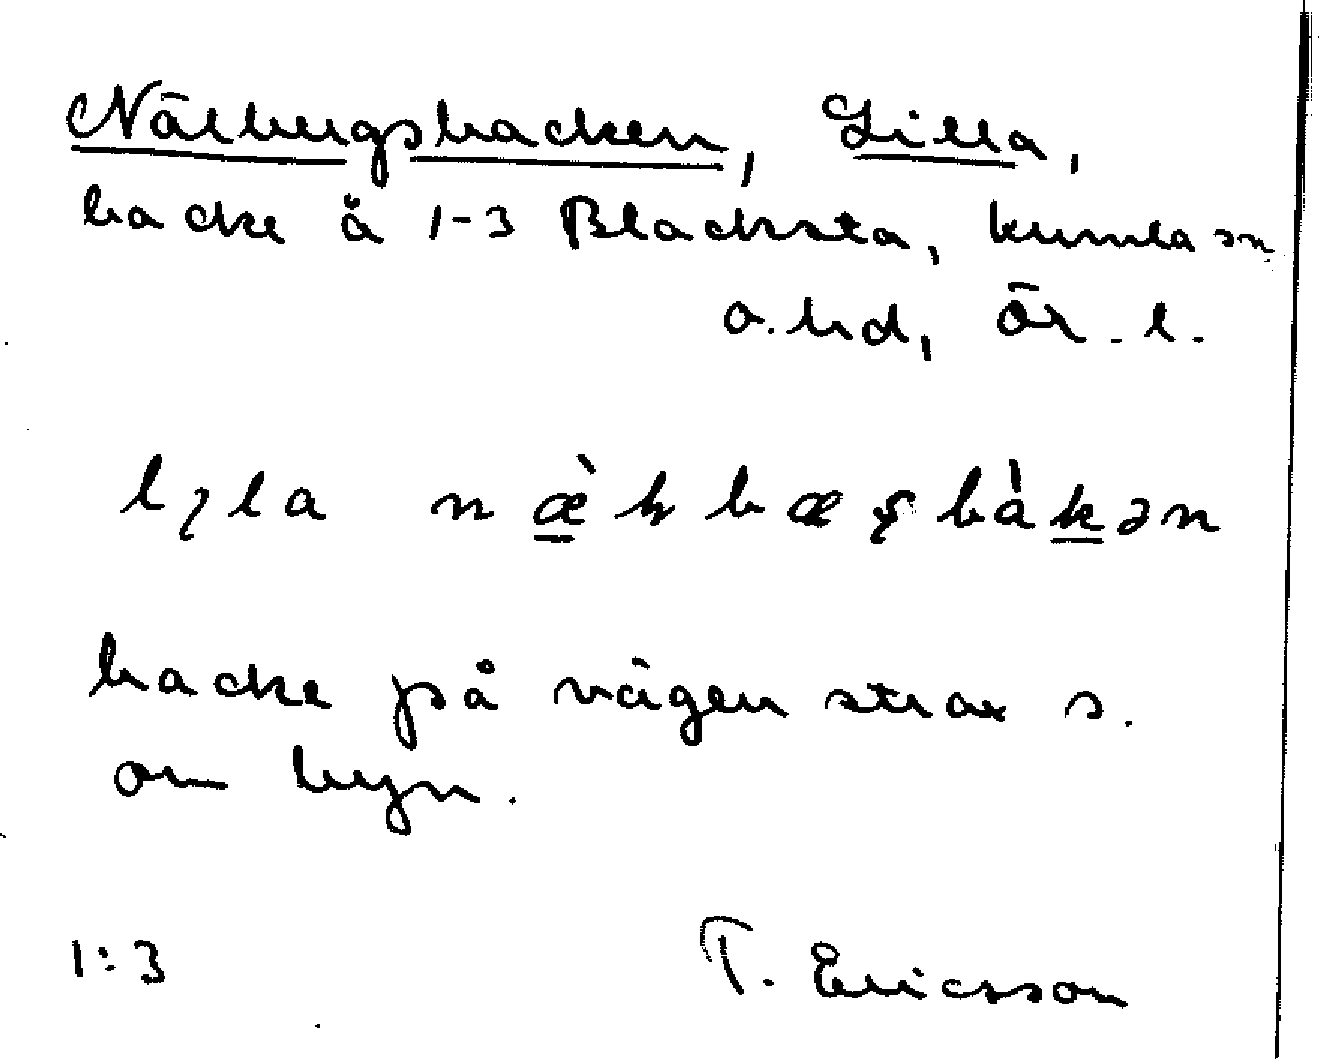 Nälbergsbacken, Lilla,
backe å 1-3 Blacksta, kumla sn
o. hd, Ör. l.
backe på vägen strax s.
om byn.
1:3 T. Ericsson